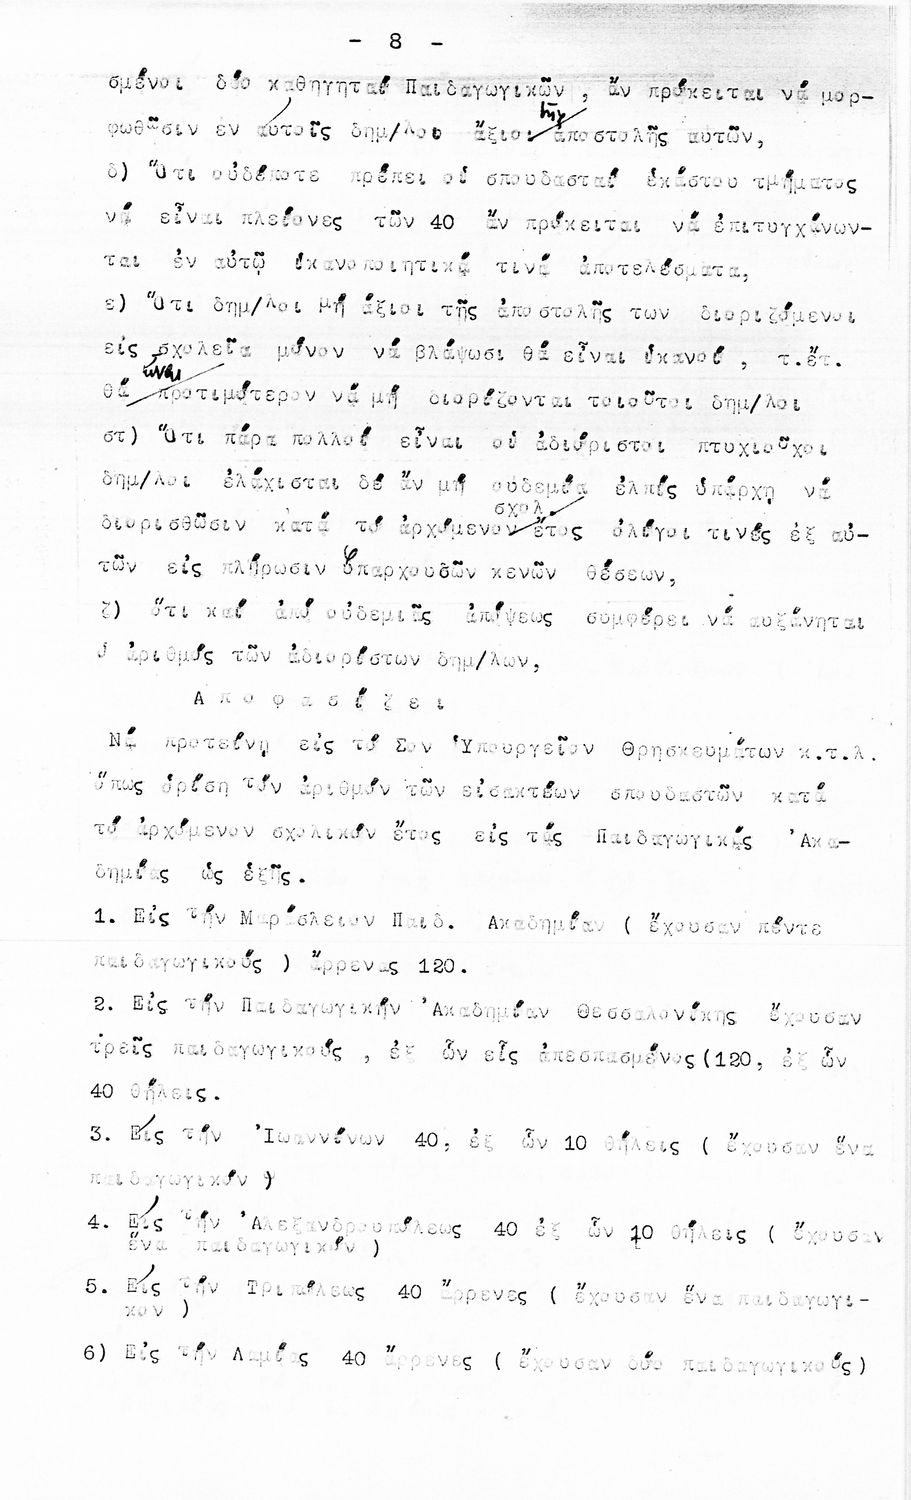 - 8 -
σμένοι δύο καθηγηταί Παιδαγωγικῶν , ἄν πρόκειται νά μορ-
φωθῶσιν ἐν αὐτοῖς δημ/λοι ἄξιοι τῆς ἀποστολῆς αὐτῶν,
δ) Ὅτι οὐδέποτε πρέπει οἱ σπουδασταί ἑκάστου τμήματος
νά εἶναι πλείονες τῶν 40 ἄν πρόκειται νά ἐπιτυγχάνων-
ται ἐν αὐτῷ ἱκανοποιητικά τινά ἀποτελέσματα,
ε) Ὅτι δημ/λοι μή ἄξιοι τῆς ἀποστολῆς των διοριζόμενοι
εἰς σχολεῖα μόνον νά βλάψωσι θά εἶναι ἱκανοί , τ.ἔτ.
θά εἶναι προτιμότερον νά μή διορίζονται τοιοῦτοι δημ/λοι
στ) Ὅτι πάρα πολλοί εἶναι οἱ ἀδιόριστοι πτυχιοῦχοι
δημ/λοι ἐλάχισται δέ ἄν μή οὐδεμία ἐλπίς ὑπάρχῃ νά
διορισθῶσιν κατά τό ἀρχόμενον σχολ. ἔτος ὀλίγοι τινές ἐξ αὐ-
τῶν εἰς πλήρωσιν ὑπαρχουσῶν κενῶν θέσεων,
ζ) ὅτι καί ἀπό οὐδεμιᾶς ἀπόψεως συμφέρει νά αυξάνηται
ὁ ἀριθμός τῶν ἀδιορίστων δημ/λων,
Α π ο φ α σ ί ζ ε ι
Νά προτείνῃ εἰς τό Σον Ὑπουργεῖον Θρησκευμάτων κ.τ.λ.
ὅπως ὁρίσῃ τόν ἀριθμόν τῶν εἰσακτέων σπουδαστῶν κατά
τό ἀρχόμενον σχολικόν ἔτος εἰς τάς Παιδαγωγικάς Ἀκα-
δημίας ὡς ἑξῆς.
1. Εἰς τήν Μαράσλειον Παιδ. Ακαδημίαν ( ἔχουσαν πέντε
παιδαγωγικούς ) ἄρρενας 120.
2. Εἰς τήν Παιδαγωγικήν Ἀκαδημίαν Θεσσαλονίκης ἔχουσαν
τρεῖς παιδαγωγικούς , ἐξ ὧν εἷς ἀπεσπασμένος(120, ἐξ ὧν
40 θήλεις.
3. Εἰς τήν Ἰωαννίνων 40, ἐξ ὧν 10 θήλεις ( ἔχουσαν ἕνα
παιδαγωγικόν )
4. Εἰς τήν Ἀλεξανδρουπόλεως 40 ἐξ ὧν 10 θήλεις ( ἔχουσαν
ἕνα παιδαγωγικόν )
5. Εἰς τήν Τριπόλεως 40 ἄρρενες ( ἔχουσαν ἕνα παιδαγωγι-
κον )
6) Εἰς τήν Λαμίας 40 ἄρρενες ( ἔχουσαν δύο παιδαγωγικούς)